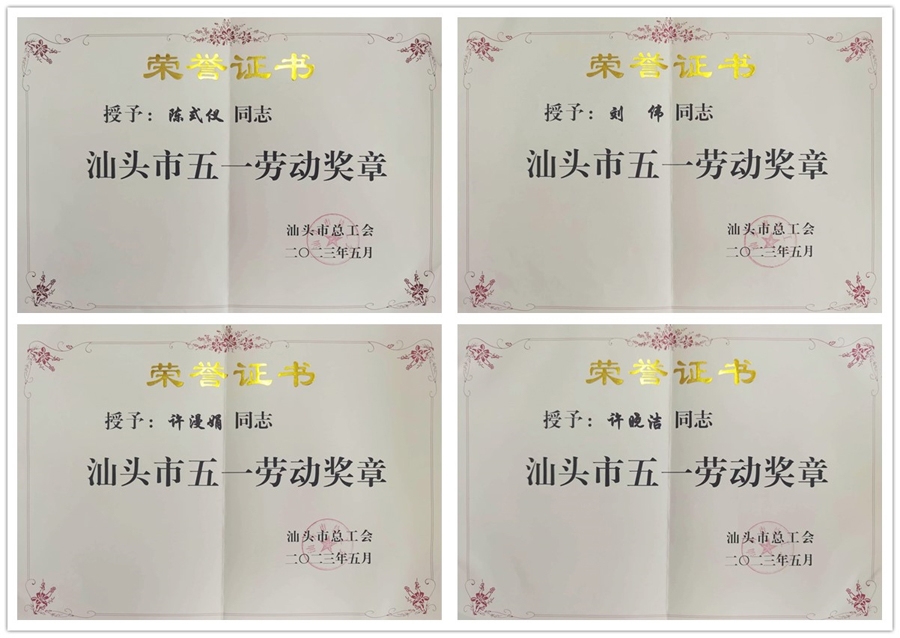 荣誉证书
授予：陈式仪同志
汕头市五一劳动奖章
汕头市总工会
二〇二三年五月
荣誉证书
授予：刘 伟同志
汕头市五一劳动奖章
汕头市总工会
二〇二三年五月
荣誉证书
授予：许漫娟同志
汕头市五一劳动奖章
汕头市总工会
二〇二三年五月
荣誉证书
授予：许晓洁同志
汕头市五一劳动奖章
汕头市总工会
二〇二三年五月